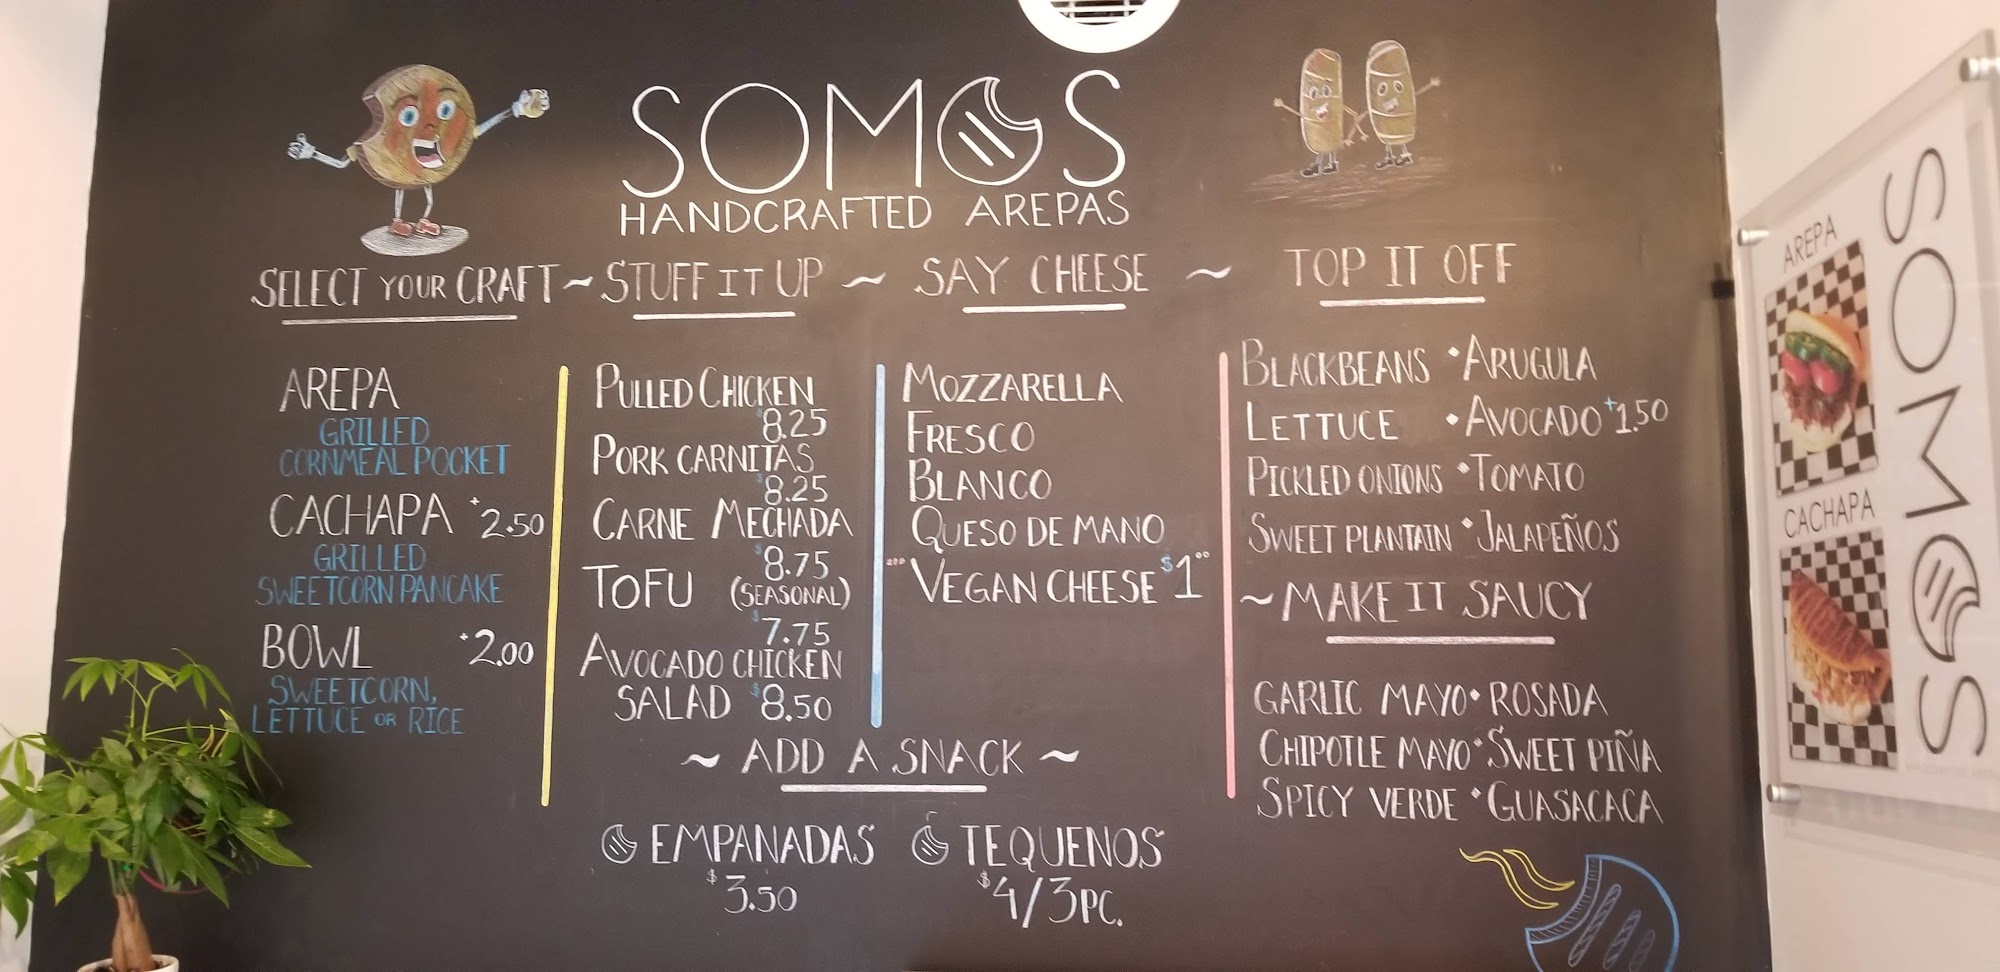 SOMOS
HANDCRAFTED AREPAS
SELECT YOUR CRAFT ~ STUFF IT UP ~ SAY CHEESE ~ TOP IT OFF
AREPA
GRILLED
CORNMEAL POCKET
CACHAPA +2.50
GRILLED
SWEETCORN PANCAKE
BOWL +2.00
SWEETCORN,
LETTUCE OR RICE
PULLED CHICKEN
$8.25
PORK CARNITAS
$8.25
CARNE MECHADA
$8.75
TOFU (SEASONAL)
$7.75
AVOCADO CHICKEN
SALAD $8.50
MOZZARELLA
FRESCO
BLANCO
QUESO DE MANO
VEGAN CHEESE $1
BLACKBEANS • ARUGULA
LETTUCE • AVOCADO +1.50
PICKLED ONIONS • TOMATO
SWEET PLANTAIN • JALAPEÑOS
~ MAKE IT SAUCY
GARLIC MAYO • ROSADA
CHIPOTLE MAYO • SWEET PIÑA
SPICY VERDE • GUASACACA
~ ADD A SNACK ~
EMPANADAS
$3.50
TEQUENOS
$4/3PC.
AREPA
CACHAPA
SOMOS